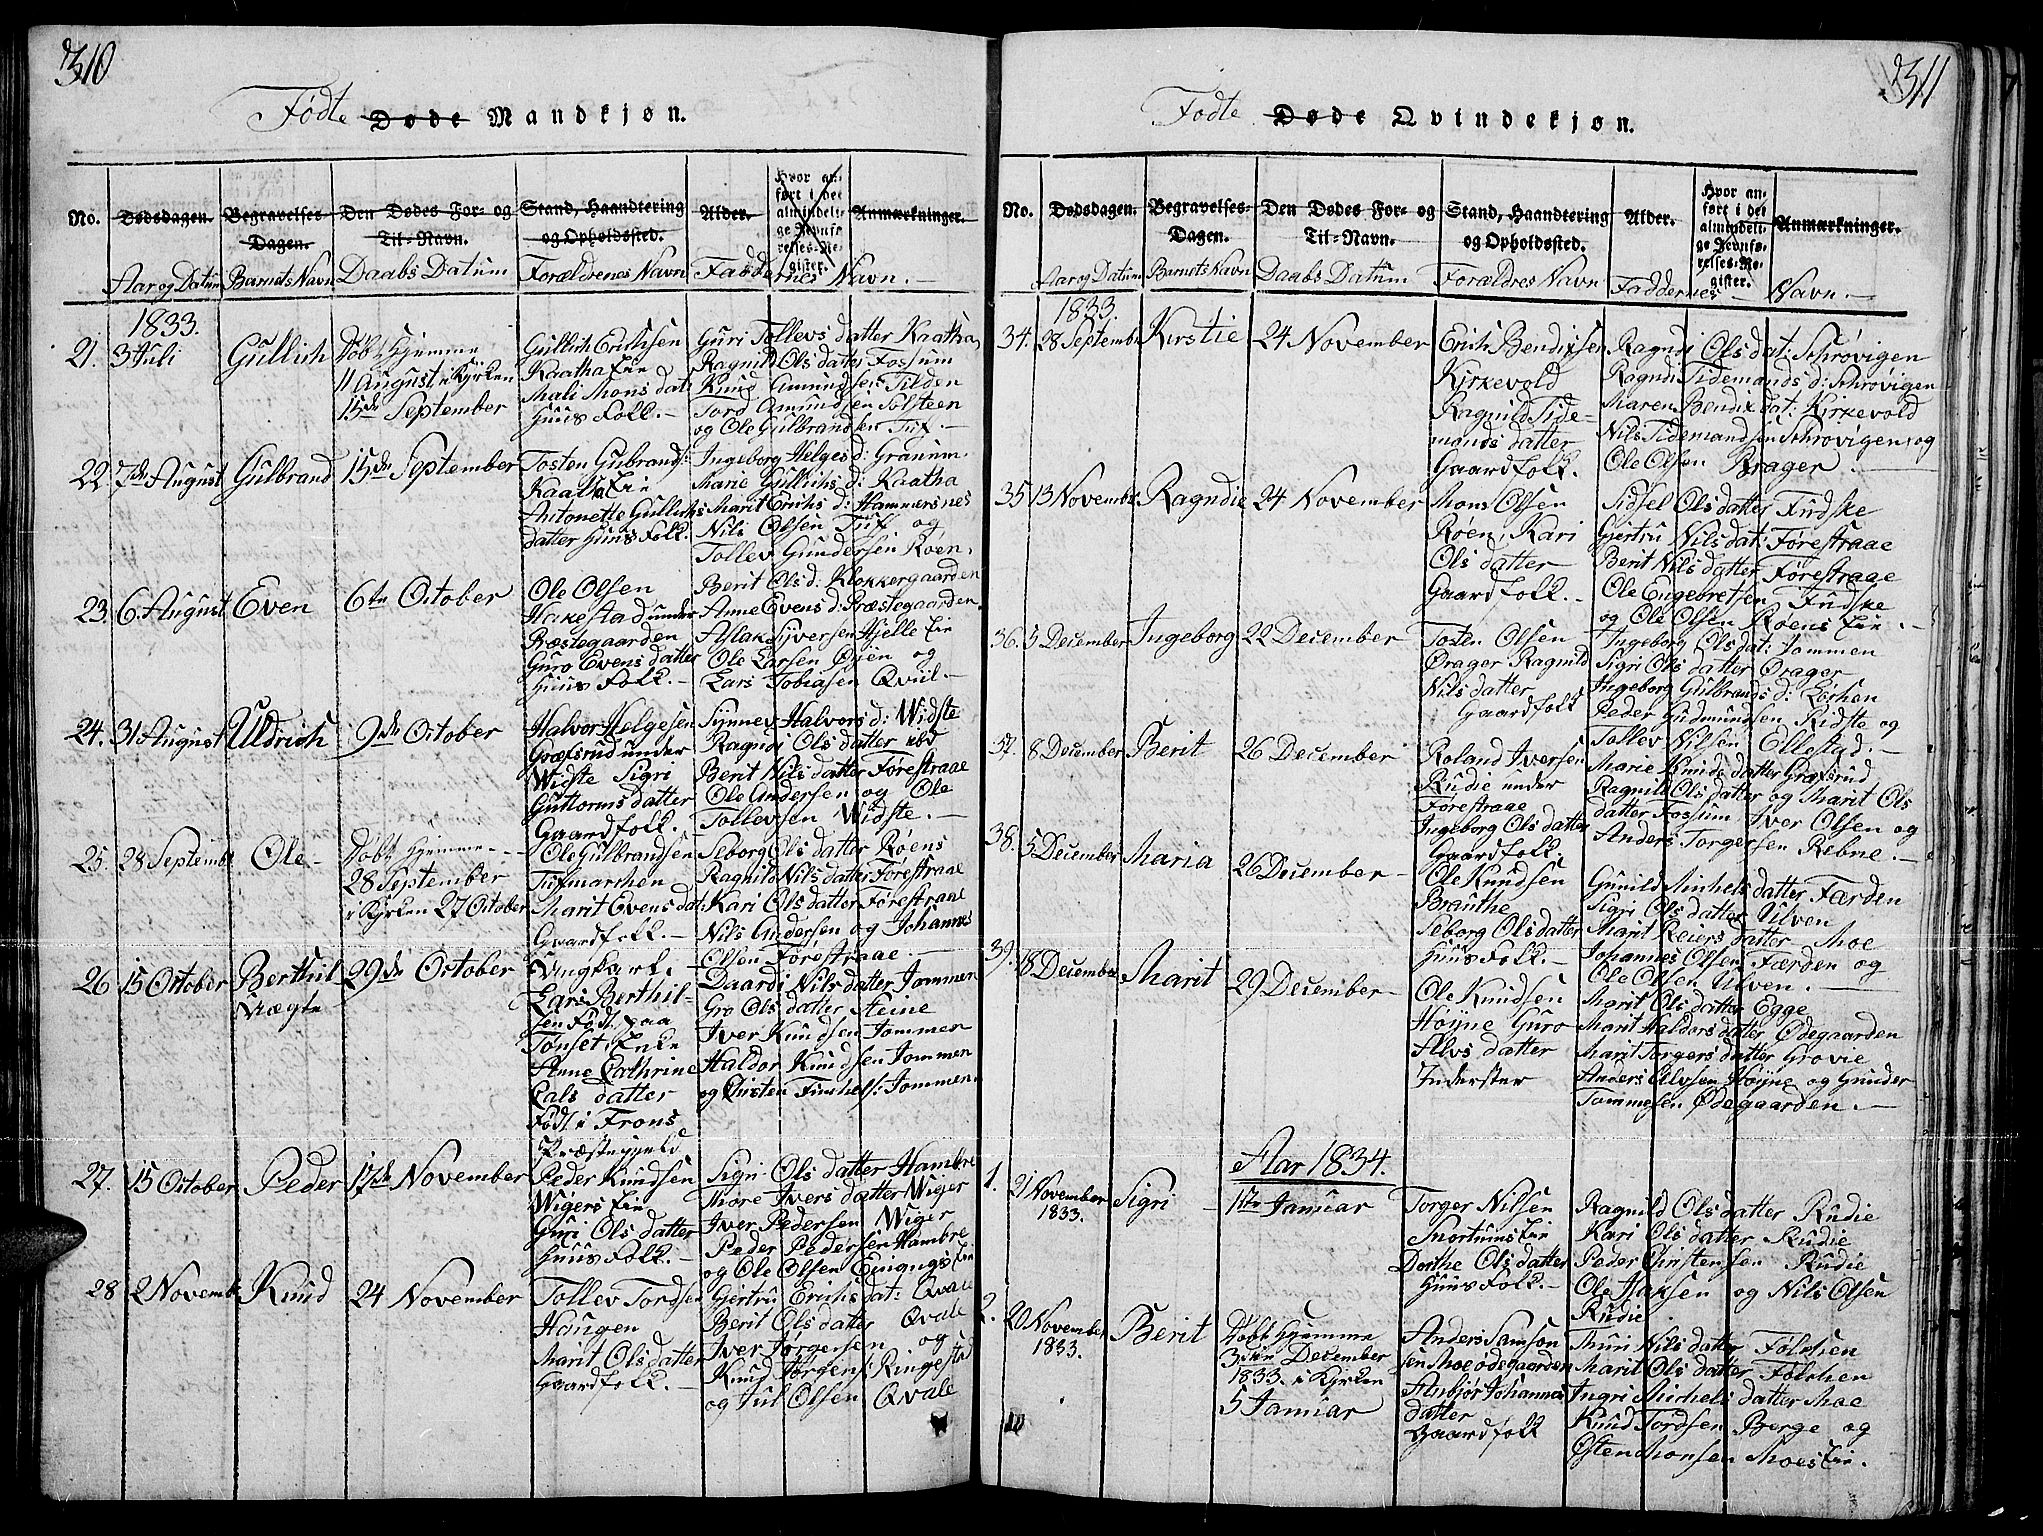 310
Fødte Døde Mandkjøn.
No. Dødsdagen. Begravelses Dagen. Den Dødes For- og Til-Navn. Stand, Haandtering og Opholdssted. Alder. Hvor anført i det almindelige Jevnførelses-Register. Anmærkninger.
Aar og Datum Barnets Navn Daabs Datum Forældrenes Navn Faddernes Navn.
1833.
21. 3 Juli Gullich
Døbt Hjemme
11 August i Kjrken
15de September
Gullich Erichsen
Kaatha Eie
Mali Mons dat:
Huus Folk.
Guri Tollevs datter Kaatha,
Ragnild Ols datter Fossum
Knud Amundsen Tilden
Tord Amundsen Solsteen
og Ole Gulbrandsen Tuf.
22 7de August Gulbrand 15de September
Tosten Gubrands:
Kaatha Eie
Antonette Gullichs
datter Huus Folk.
Ingeborg Helges d: Graum.
Marie Gullichs d: Kaatha
Marit Erichs d: Hammersnes
Nils Olsen Tuf og
Tollev Gundersen Røen.
23. 6. August Even 6te October
Ole Olsen
Hakestad under
Præstegaarden
Guro Evens datter
Huus Folk.
Berit Ols d: Klokkergaarden
Anne Evens d: Præstegaarden
Aslak Syversen Hjelle Eie
Ole Larsen Øjen og
Lars Tobiasen Qvil
24. 31 August Uldrich 9de October
Halvor Helgesen
Græfsrud under
Widste Sigri
Guttorms datter
Gaardfolk.
Synnev Halvors d: Widste
Ragndi Ols datter ibd
Berit Nils datter Førestraae
Ole Andersen og Ole
Tollevsen Widste.
25. 28 Septembr Ole
Døbt Hjemme
28 September
i Kjrken 27 October
Ole Gulbrandsen
Tufmarchen
Marit Evens dat:
Gaardfolk.
Seborg Ols datter Røens
Ragnild Nils datter Førestraae
Kari Ols datter Førestraae
Nils Andersen og Johannes
Olsen Førestraae
26 15 October Berthil
Uægte
29de October
Ungkarl.
Lars Berthil-
sen Født paa
Tonset, Enke
Anne Cathrine
Lals datter
Født i Frons
Præstegjeld
Daardi Nils datter Jommen
Gro Ols datter Steine
Iver Knudsen Jommen
Haldor Knudsen Jommen
og Christen Finchels: Jommen
27. 15 October Peder 17de November
Peder Knudsen
Wigers Eie
Guri Ols datter
Huus Folk.
Sigri Ols datter Hambre
Thore Ivers datter Wiger
Iver Pedersen Wiger
Peder Pedersen Hambre
og Ole Olsen Eie
28 2 Novemb: Knud 24 November
Tollev Tordsen
Haugen
Marit Ols datter
Gaardfolk.
Gjertru Erichs dat: Qvale
Berit Ols datter Qvale
Iver Jørgensen og
Knud Jørgens: Ringestad
og Jul Olsen Qvale
311
Fødte Døde Qvindekjøn.
No. Dødsdagen. Begravelses-Dagen. Den Dødes For- og Til-Navn. Stand, Haandtering og Opholdssted. Alder. Hvor anført i det almindelige Jevnførelses-Register. Anmærkninger.
Aar og Datum Barnets Navn Daabs Datum Forældres Navn Faddernes Navn.
1833.
34. 28 Septembr Kirstie 24 November
Erich Bendixsen
Kjrkevold
Ragnild Tide-
mands datter
Gaardfolk.
Ragndi Ols dat: Schrøvigen
Ragndi Tidemands d: Schrøvigen
Maren Bendix dat: Kirkevold
Nils Tidemandsen Schrøvigen og
Ole Olsen Brager
35 13 Novembr. Ragndie 24 November
Mons Olsen
Røen, Kari
Ols datter
Gaardfolk.
Sidsel Ols datter Fudske
Gjertru Nils dat: Førestraae
Berit Nils datter Førestraae
Ole Engebretsen Fudske
og Ole Olsen Røens Eie.
36. 5 December Ingeborg 22 December
Tosten Olsen
Ørager Ragnild
Nils datter
Gaardfolk
Ingeborg Ols dat: Jommen
Sigri Ols datter Ørager
Ingeborg Gulbrands d: Lerhen
Peder Gudmundsen Ridste og
Tollev Nilsen Ellestad.
37. 8 December Berit 26 December
Roland Iversen
Rudie under
Førestraae
Ingeborg Ols datter
Gaardfolk.
Marie Knuds datter Grafsrud
Ragnild Ols datter og Marit Ols
datter Fossum Iver Olsen og
Anders Torgersen Rebne.
38. 5 December Maria 26 December
Ole Knudsen
Brauthe
Seborg Ols datter
Huus Folk.
Gunild Michels datter Færden
Sigri Ols datter Ulven
Marit Reiers datter Moe
Johannes Olsen Færden og
Ole Olsen Ulven.
39. 18 December Marit 29 December
Ole Knudsen
Høyne Guro
Alvs datter
Inderster
Marit Ols datter Egge
Marit Haldors datter Ødegaarden
Marit Torgers datter Grovie
Anders Alvsen Høyne og Gunder
Tommesen Ødegaarden.
Aar 1834.
1. 21 November
1833. Sigri 1ste Januar
Torger Nilsen
Snortums Eie
Dorthe Ols datter
Huus Folk.
Ragnild Ols datter Rudie
Kari Ols datter Rudie
Peder Christensen Rudie
Ole Haksen og Nils Olsen
Rudie
2. 20 November
1833. Berit
Døbt Hjemme
3die December
1833. i Kjrken
5 Januar
Anders Samson
sen Moe ødegaarden
Anbjør Johannes
datter
Gaardfolk
Thuri Nils datter Følchen
Marit Ols datter Følchen
Ingri Michels datter Moe
Knud Tordsen Berge og
Østen Monsen Moes Eie.